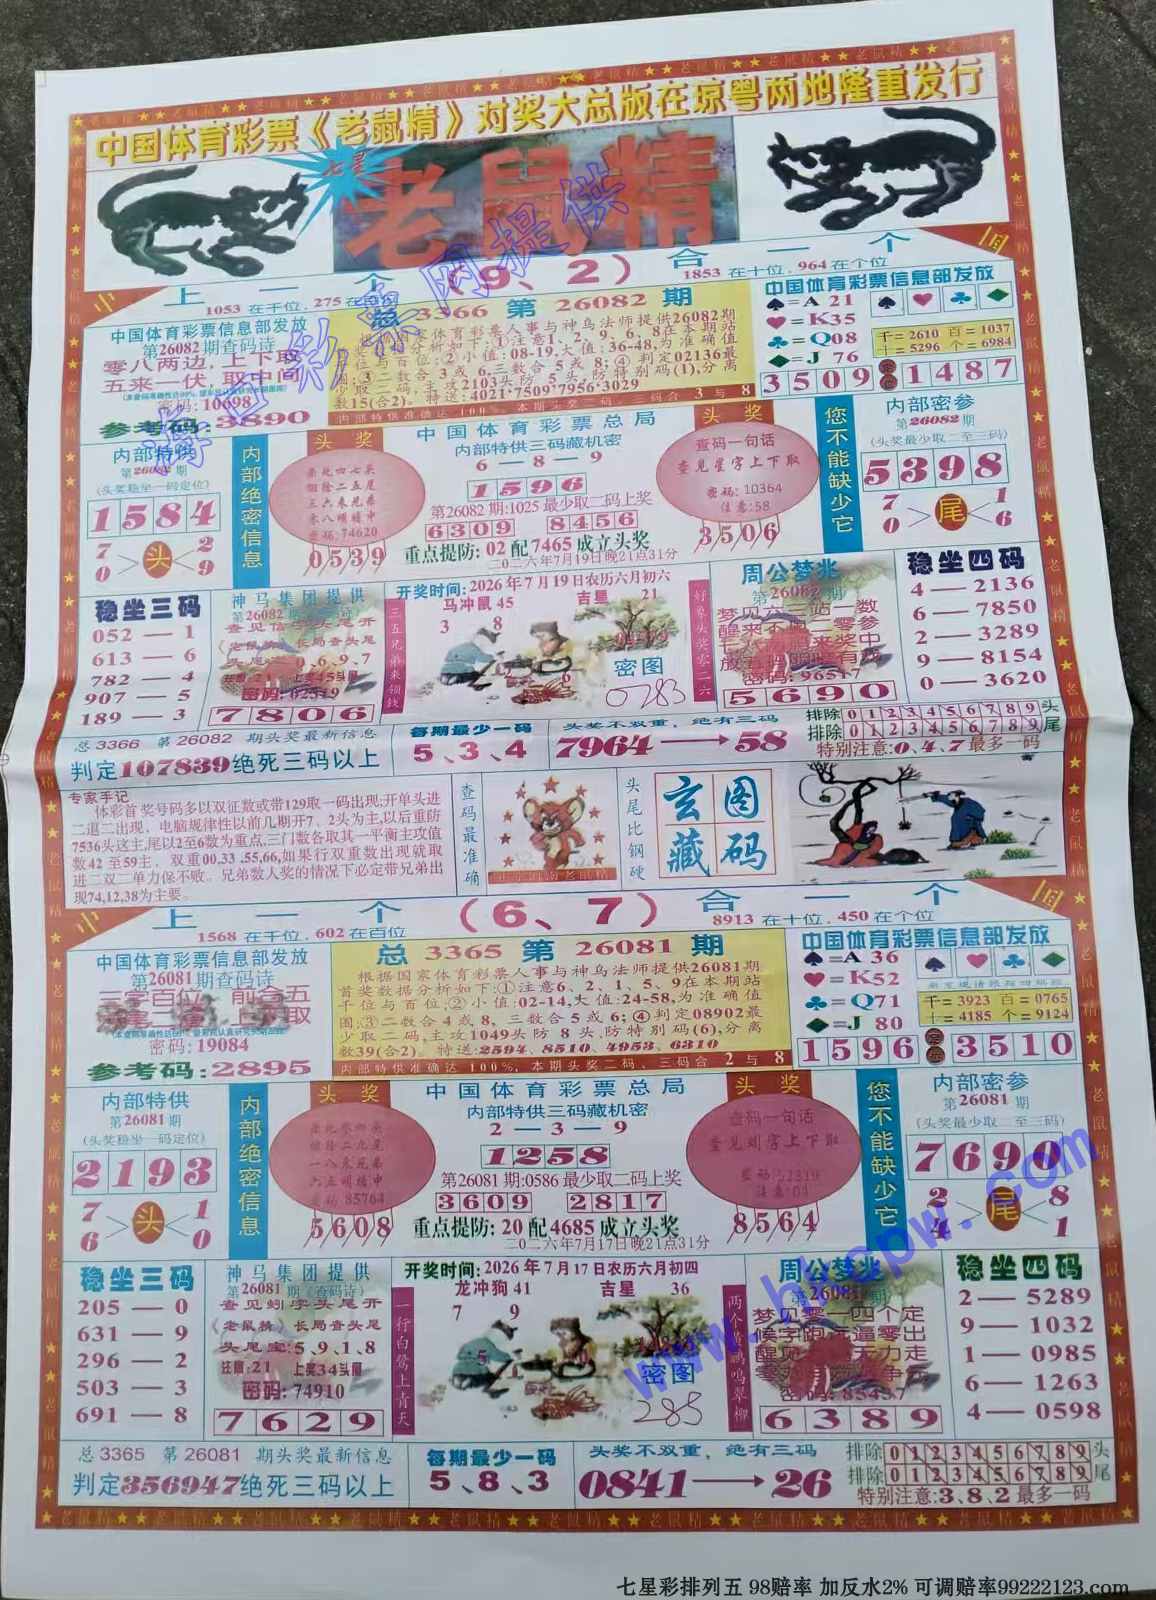 中国体育彩票《老鼠精》对奖大总版在琼粤两地隆重发行
七星
老鼠精
中 上一个(9、2)合一个 国
1053 在千位, 275 在百位
1853 在十位, 964 在个位
中国体育彩票信息部发放
第26082期查码诗
零八两边,上下取
五来一伏,取中间
密码: 10698
参考码:3890
总 3366 第 26082 期
数15(合2)。特送:4021·7509·7956·3029
内部特供准确达 100%,本期头奖二码、三码合 3 与 8
中国体育彩票信息部发放
♠=A 21
♥=K35
♣=Q08
♦=J 76
千=2610 百=1037
十=5296 个=6984
3509 定位 1487
内部特供
第26082期
(头奖稳坐一码定位)
1584
7 0 > 头 < 2 9
内部绝密信息
头奖
密码: 74620
0539
中国体育彩票总局
内部特供三码藏机密
6—8—9
1596
第26082期:1025最少取二码上奖
6309 8456
重点提防: 02 配 7465 成立头奖
二0二六年7月19日晚21点31分
头奖
查码一句话
查见星字上下取
密码: 10364
注意: 58
3506
您不能缺少它
内部密参
第26082期
(头奖最少取二至三码)
5398
7 0 > 尾 < 1 6
稳坐三码
052—1
613—6
782—4
907—5
189—3
神马集团提供
第26082期(查码诗)
查见信字头尾开
老鼠精 长局查头尾
头尾宝:0、6、9、7
注意: 21 上奖45头尾
密码: 02519
7806
三五兄弟来领钱
开奖时间: 2026年7月19日农历六月初六
马冲鼠 45 吉星 21
3 8
密图
0283
好象头奖零二六
周公梦兆
第26082期
梦见六三站一数
密码: 96517
5690
稳坐四码
4—2136
6—7850
2—3289
9—8154
0—3620
总3366 第26082 期头奖最新信息
判定107839绝死三码以上
每期最少一码
5、3、4
头奖不双重,绝有三码
7964→58
排除 0 1 2 3 4 5 6 7 8 9 头
排除 0 1 2 3 4 5 6 7 8 9 尾
特别注意:0、4、7最多一码
专家手记
体彩首奖号码多以双征数或带129取一码出现;开单头进
二退二出现,电脑规律性以前几期开7、2头为主,以后重防
7536头这主,尾以2至6数为重点,三门数各取其一平衡主攻值
数42至59主,双重00,33,55,66,如果行双重数出现就取
进二双二单力保不败。兄弟数人奖的情况下必定带兄弟出
现74,12,38为主要。
查码最准确
头尾比钢硬
玄图藏码
中 上一个(6、7)合一个 国
1568 在千位, 602 在百位
8913 在十位, 450 在个位
中国体育彩票信息部发放
第26081期查码诗
密码: 19084
参考码:2895
总 3365 第 26081 期
根据国家体育彩票人事与神鸟法师提供26081期
首奖数据分析如下:①注意6、2、1、5、9在本期站
千位与百位,②小值:02-14,大值:24-58,为准确值
图;③二数合4或8,三数合5或6;④判定08902最
少取二码,主攻1049头防8头,防特别码(6),分离
数39(合2)。特送:2594、8510、4953、6310
内部特供准确达 100%,本期头奖二码、三码合 2 与 8
中国体育彩票信息部发放
♠=A 36
♥=K52
♣=Q71
♦=J 80
千=3923 百=0765
十=4185 个=9124
1596 定位 3510
内部特供
第26081期
(头奖稳坐一码定位)
2193
7 6 > 头 < 1 0
内部绝密信息
头奖
密码 85764
5608
中国体育彩票总局
内部特供三码藏机密
2—3—9
1258
第26081期:0586最少取二码上奖
3609 2817
重点提防: 20 配 4685 成立头奖
二0二六年7月17日晚21点31分
头奖
查码一句话
查见刘字上下取
8564
您不能缺少它
内部密参
第26081期
(头奖最少取二至三码)
7690
2 4 > 尾 < 8 1
稳坐三码
205—0
631—9
296—2
503—3
691—8
神马集团提供
第26081期(查码诗)
查见蚓字头尾开
老鼠精 长局查头尾
头尾宝:5、9、1、8
注意: 21 上奖34头尾
密码: 74910
7629
一行白鹭上青天
开奖时间: 2026年7月17日农历六月初四
龙冲狗 41 吉星 36
7 9
密图
285
两个黄鹂鸣翠柳
周公梦兆
第26081期
梦见零一四个定
密码: 85437
6389
稳坐四码
2—5289
9—1032
1—0985
6—1263
4—0598
总3365 第26081 期头奖最新信息
判定356947绝死三码以上
每期最少一码
5、8、3
头奖不双重,绝有三码
0841→26
排除 0 1 2 3 4 5 6 7 8 9 头
排除 0 1 2 3 4 5 6 7 8 9 尾
特别注意:3、8、2最多一码
七星彩排列五 98赔率 加反水2% 可调赔率99222123.com